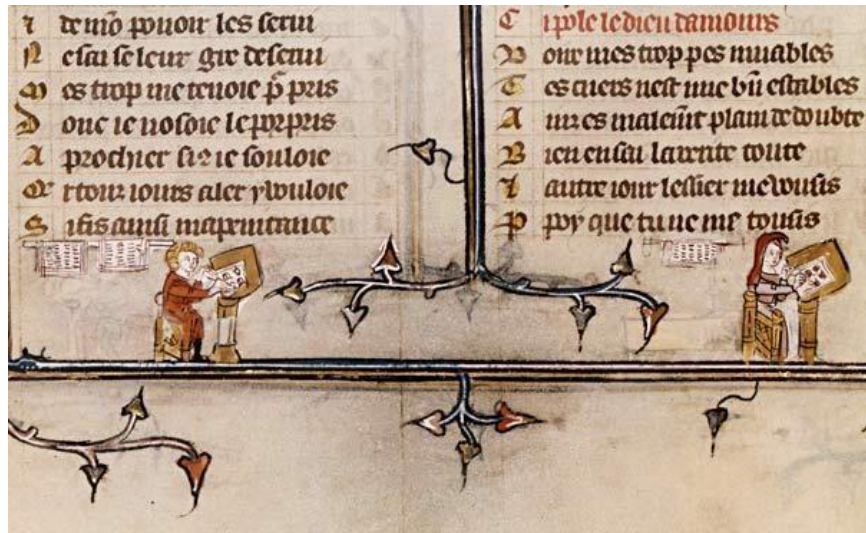 de mõ pouoir les serui
N e sai se leur gre deserui
M es trop me tenoie p̃ pris
D onc ie nosoie le porpris
A prochier si 9 ie souloie
touz iours aler y vouloie
S i fis ainsi ma penitance
C i pole le dieu damours
mes trop pes muables
T es cuers nest mie bñ estables
A inz es malem̃t plain de doubte
B ien en sai la verite toute
autre iour lessier me vousis
P poy que tu ne me tousis